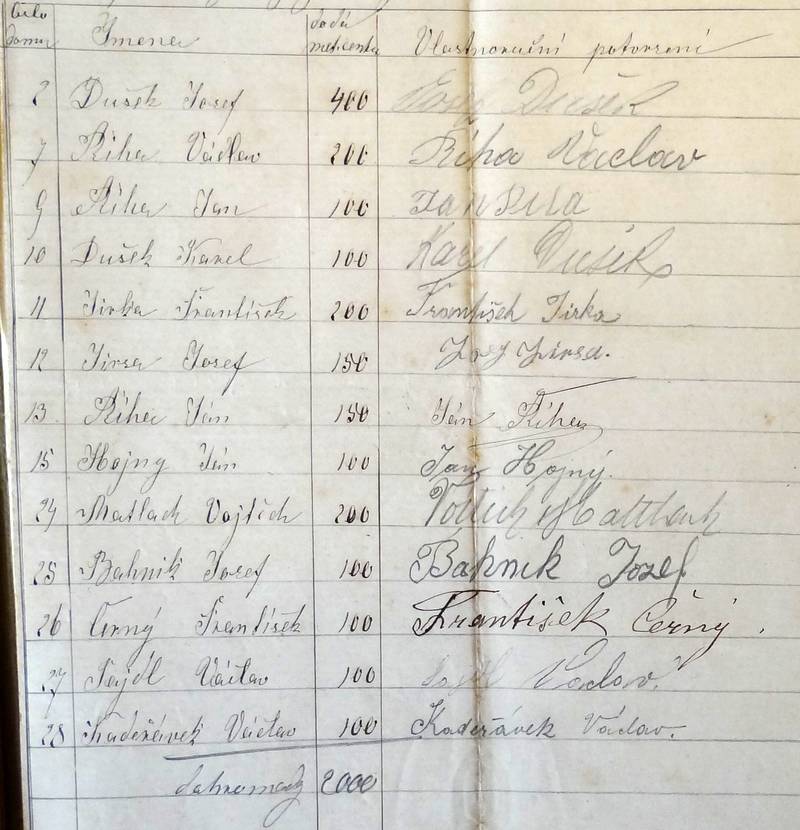 číslo domu Jmena dodá met. centů Vlastnoruční potvrzení
2 Dušek Josef 400 Josef Dušek
7 Říha Václav 200 Říha Václav
9 Říha Jan 100 Jan
10 Dušek Karel 100 Karel Dušek
11 Jirka František 200 František Jirka
12 Jirsa Josef 150 Josef Jirsa.
13 Říha Ján 150 Ján Říha
15 Hojny Ján 100 Jan Hojný.
24 Matlach Vojtěch 200 Mattlach
25 Bahnik Josef 100 Bahnik Jozef
26 Černý František 100 František Černý.
27 Fajdl Václav 100 Václav.
28 Kadeřávek Václav 100 Kadeřávek Václav.
dohromady 2000